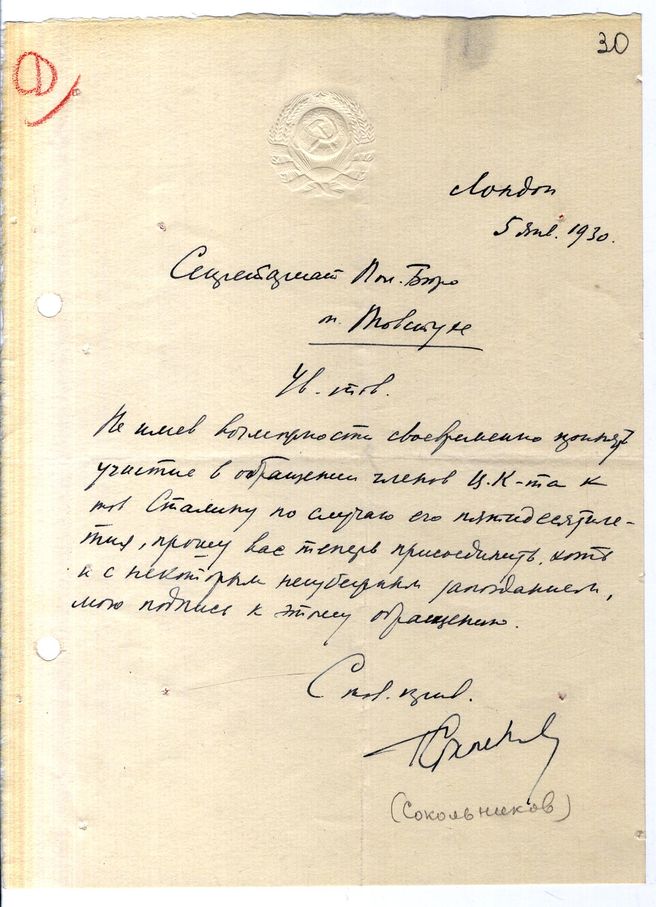 30
Лондон
5 янв. 1930.
Секретариат Пол. Бюро
т. Товстухе
Ув. тов.
Не имев возможности своевременно принять
участие в обращении членов Ц.К-та к
тов Сталину по случаю его пятидесятиле-
тия, прошу вас теперь присоединить, хоть
и с некоторым неизбежным запозданием,
мою подпись к этому обращению.
С тов. прив.
(Сокольников)